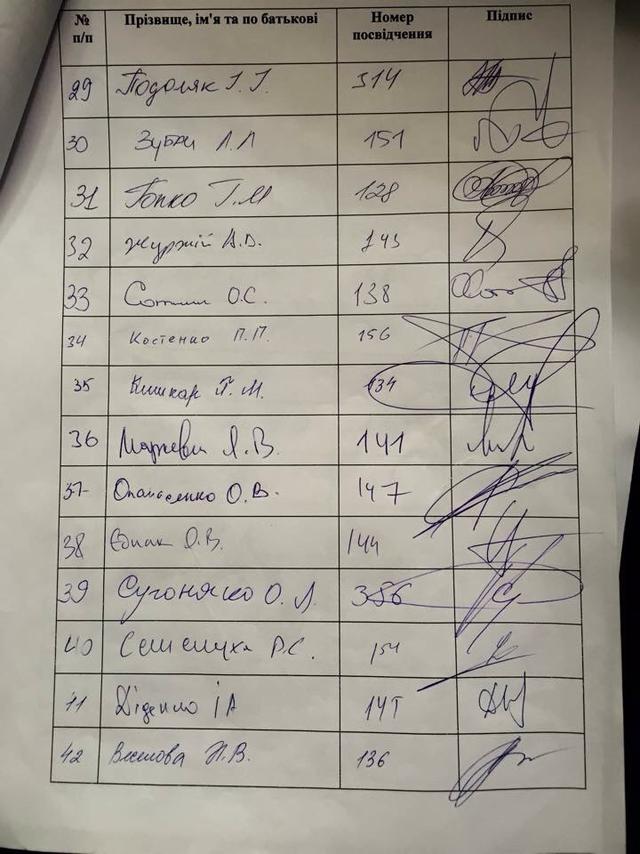 № п/п Прізвище, ім'я та по батькові Номер посвідчення Підпис
29 Подоляк І. І. 314
30 Зубач Л.Л 151
31 Гопко Г.М 128
32 Журжій А.В. 143
33 О.С. 138
34 Костенко П.П. 156
35 Кишкар П. М. 134
36 Маркевич Я.В 141
37 Опанасенко О.В. 147
38 Єднак О.В. 144
39 Сугоняко О.Л 356
40 Семенуха Р.С. 154
41 Діденко ІА 14
42 Н.В. 136